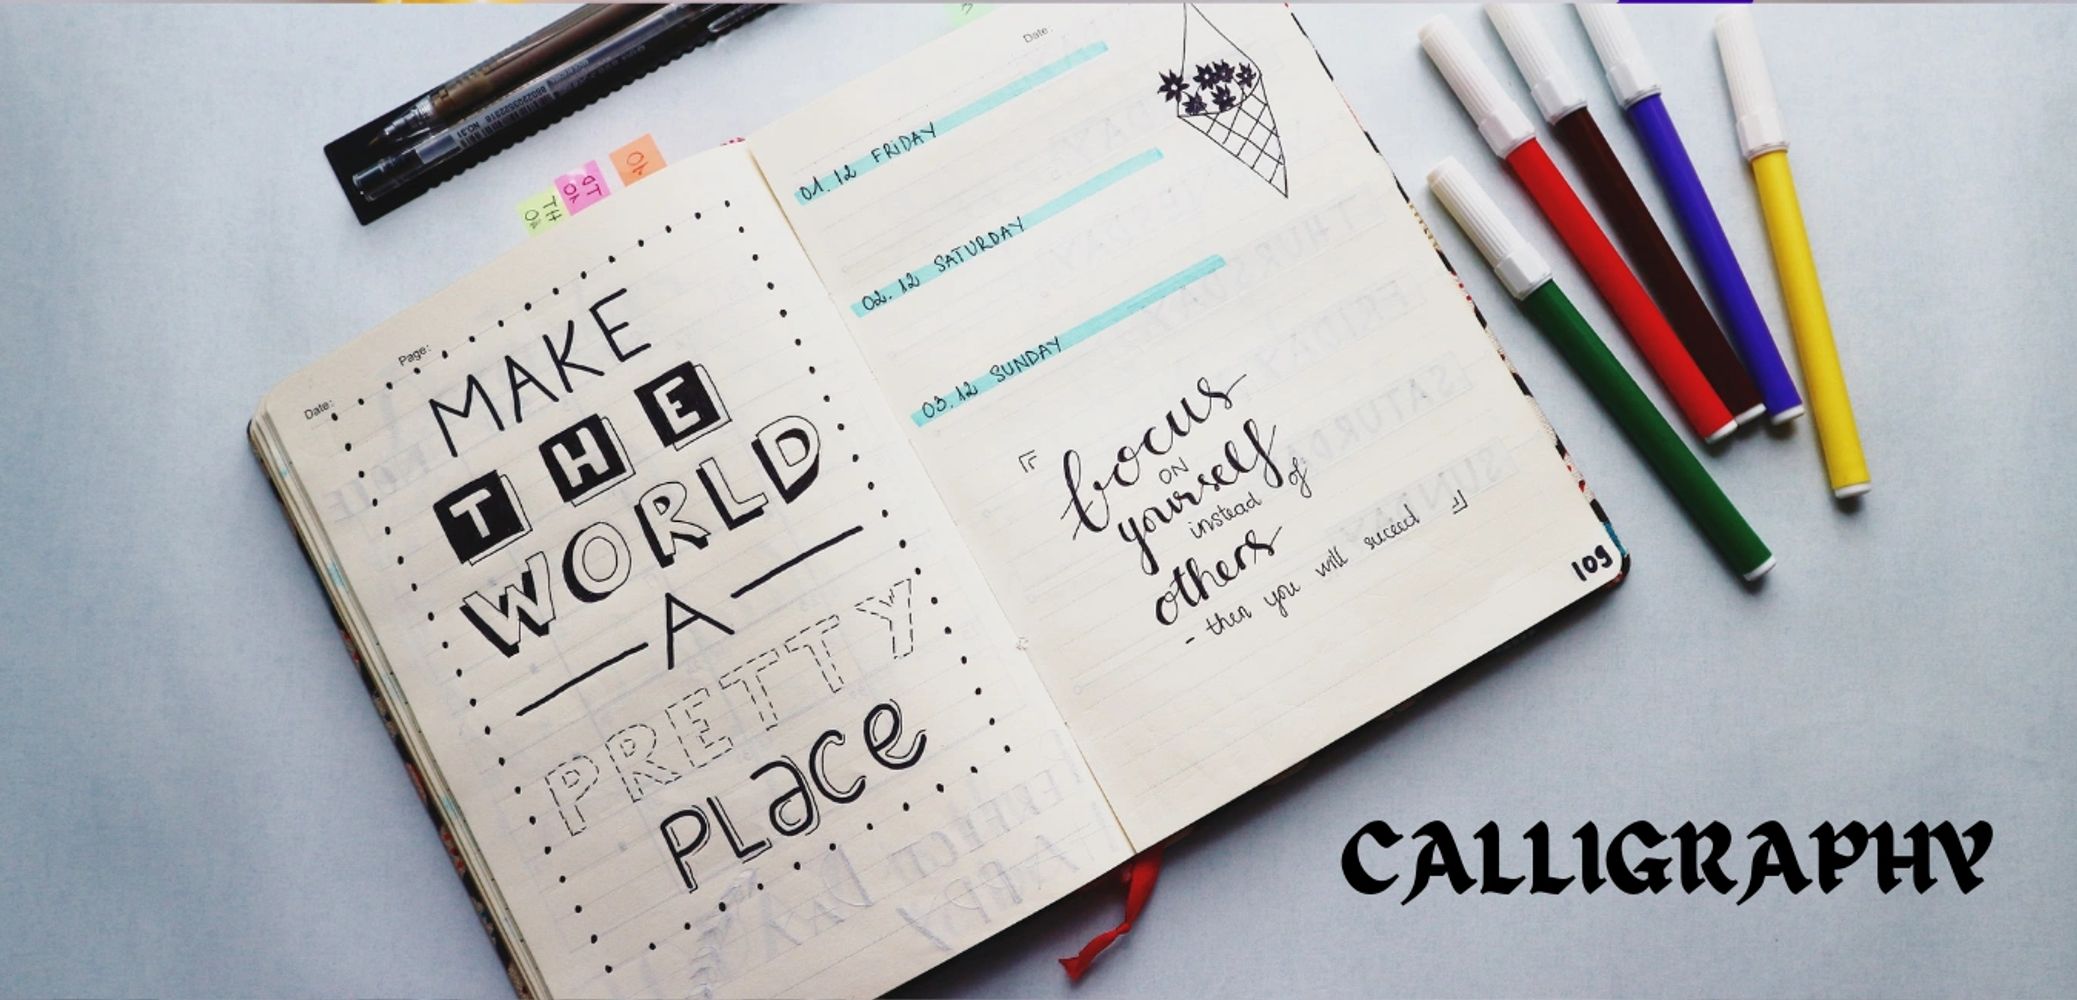 Page:
Date:
MAKE
THE
WORLD
A
PRETTY
PLace
Date:
01.12 FRIDAY
02.12 SATURDAY
03.12 SUNDAY
focus
ON
yourself
instead of
others
- then you will succeed
109
CALLIGRAPHY